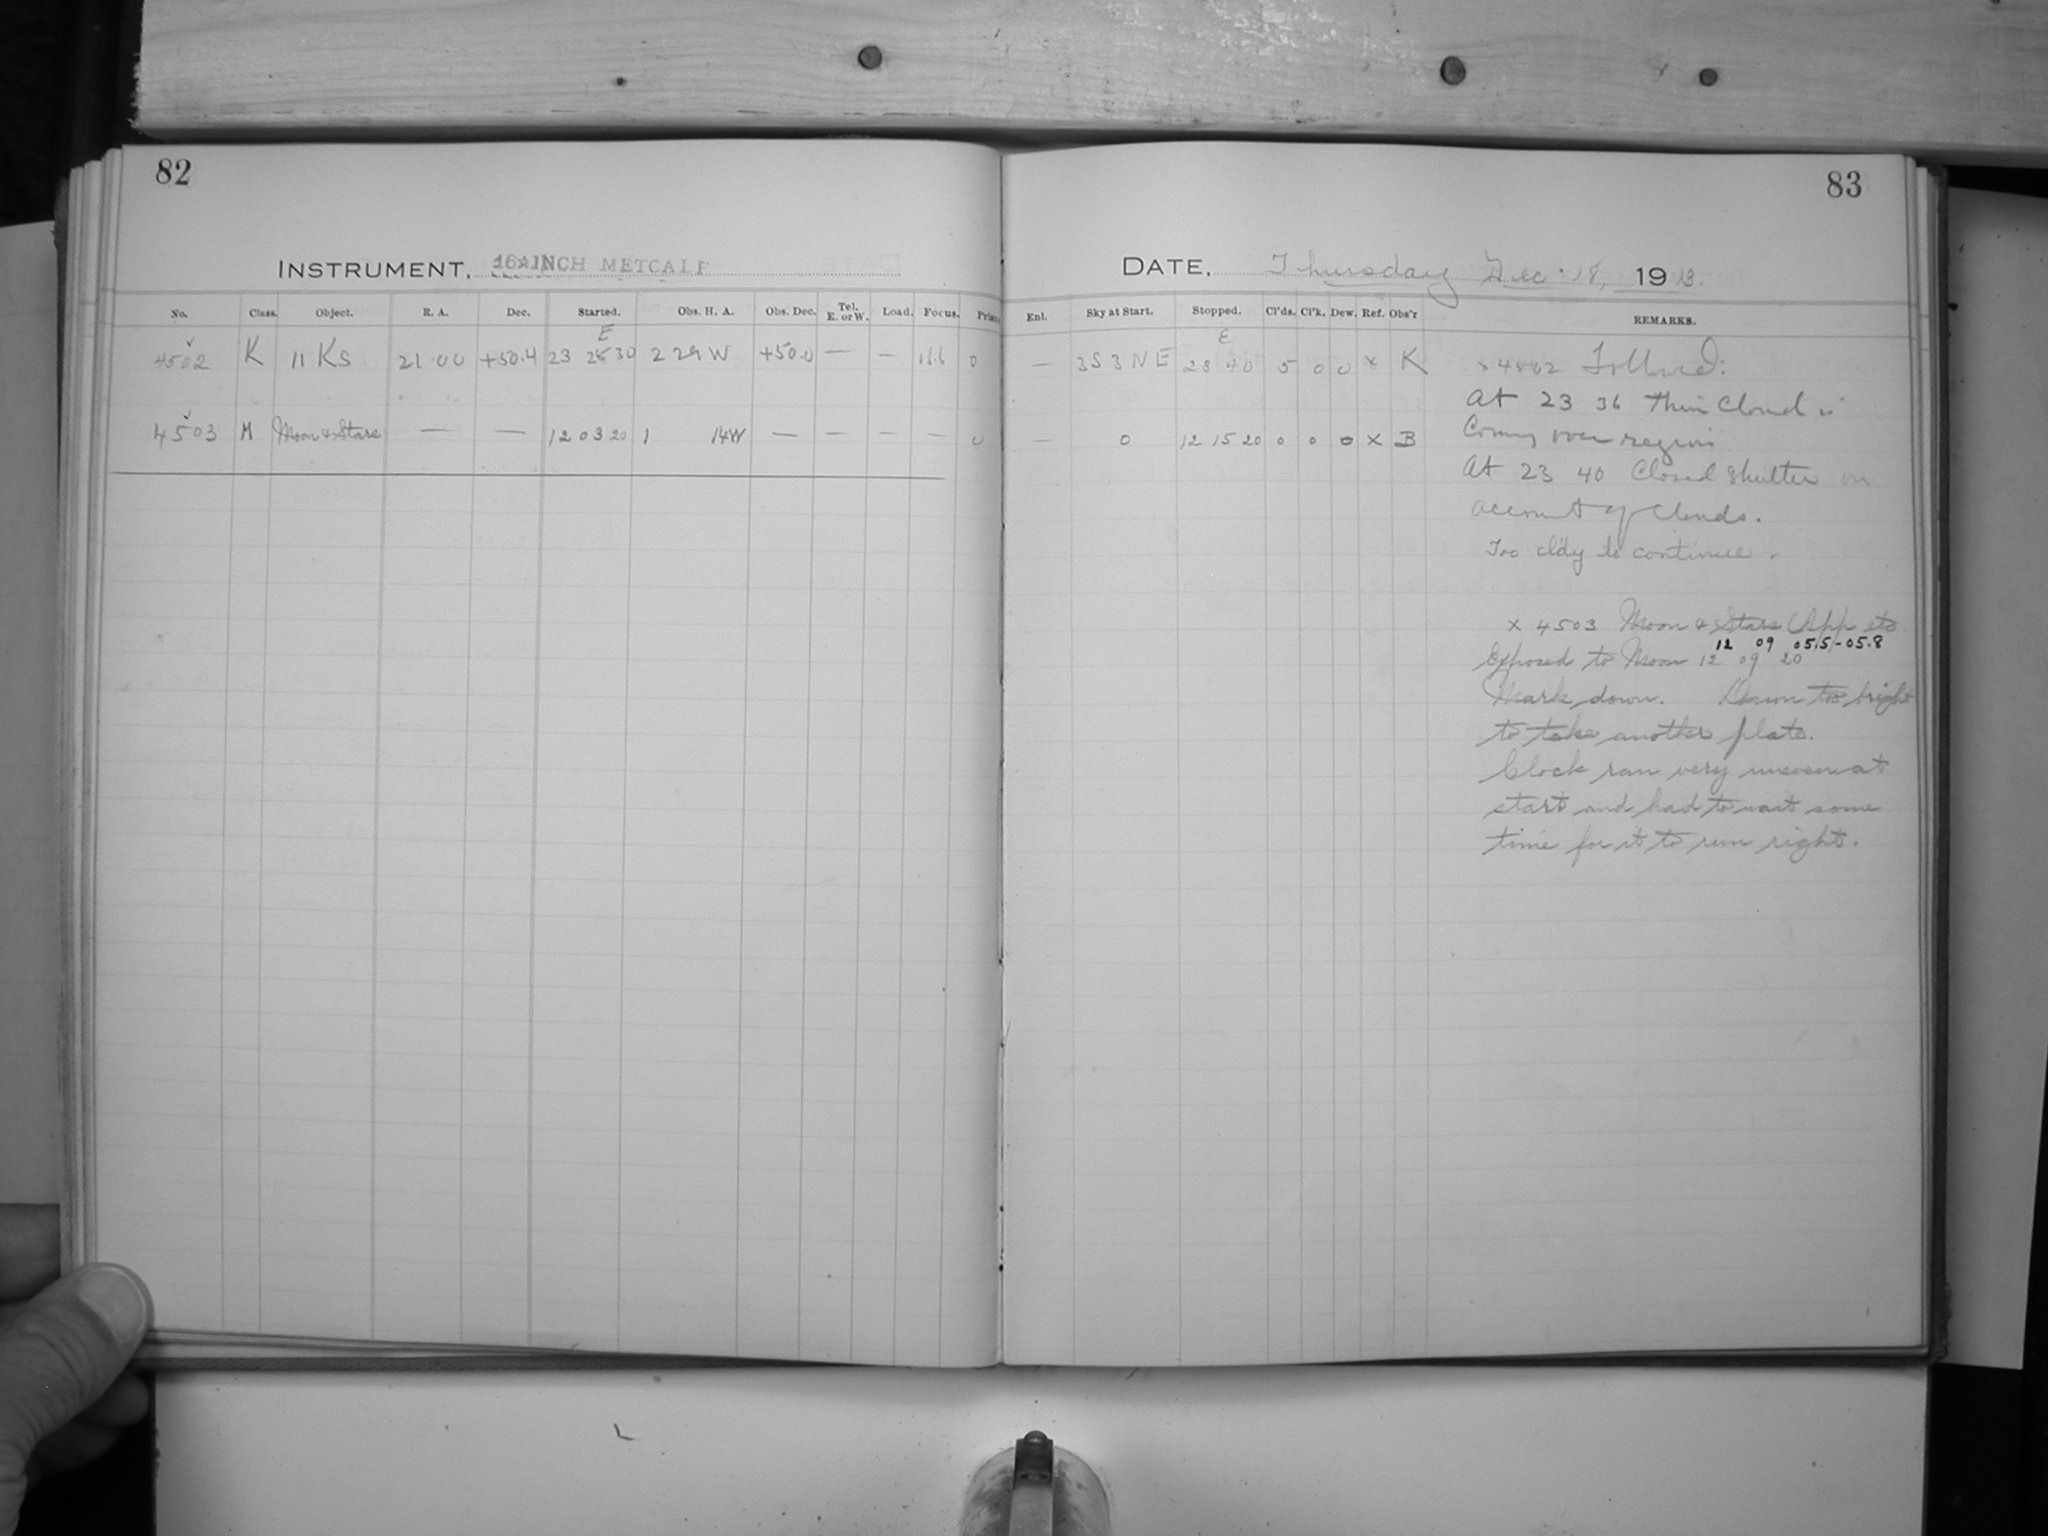 82
INSTRUMENT, 16 INCH METCALF
No. Class. Object. R. A. Dec. Started. Obs. H. A. Obs. Dec. Tel. E. or W. Load. Focus.
E
4502 K 11 Ks 21 00 +50.4 23 28 30 2 29 W +50.0 — — 11.6 0
4503 M Moon & Stars — — 12 03 20 1 14W — — — — 0
83
DATE, Thursday Dec. 18, 1913.
Enl. Sky at Start. Stopped. Cl'ds. Cl'k. Dew. Ref. Obs'r REMARKS.
E
— 3S 3NE 23 40 5 0 0 x K
— 0 12 15 20 0 0 0 x B
x 4502 Follwed:
At 23 36 thin Cloud is
Coming over region
At 23 40 Closed Shutter on
account of Clouds.
Too cl'dy to continue.
x 4503 Moon & Stars (App etc
12 09 05.5-05.8
Exposed to Moon 12 09 20
Mark down. Dawn too bright
to take another plate.
Clock ran very uneven at
start and had to wait some
time for it to run right.